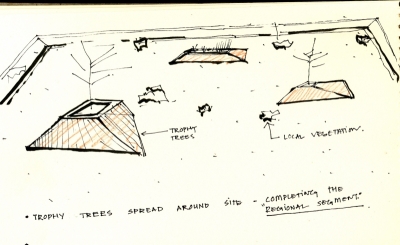 TROPHY
TREES
LOCAL VEGETATION.
• TROPHY TREES SPREAD AROUND SITE - "COMPLETING THE
REGIONAL SEGMENT."